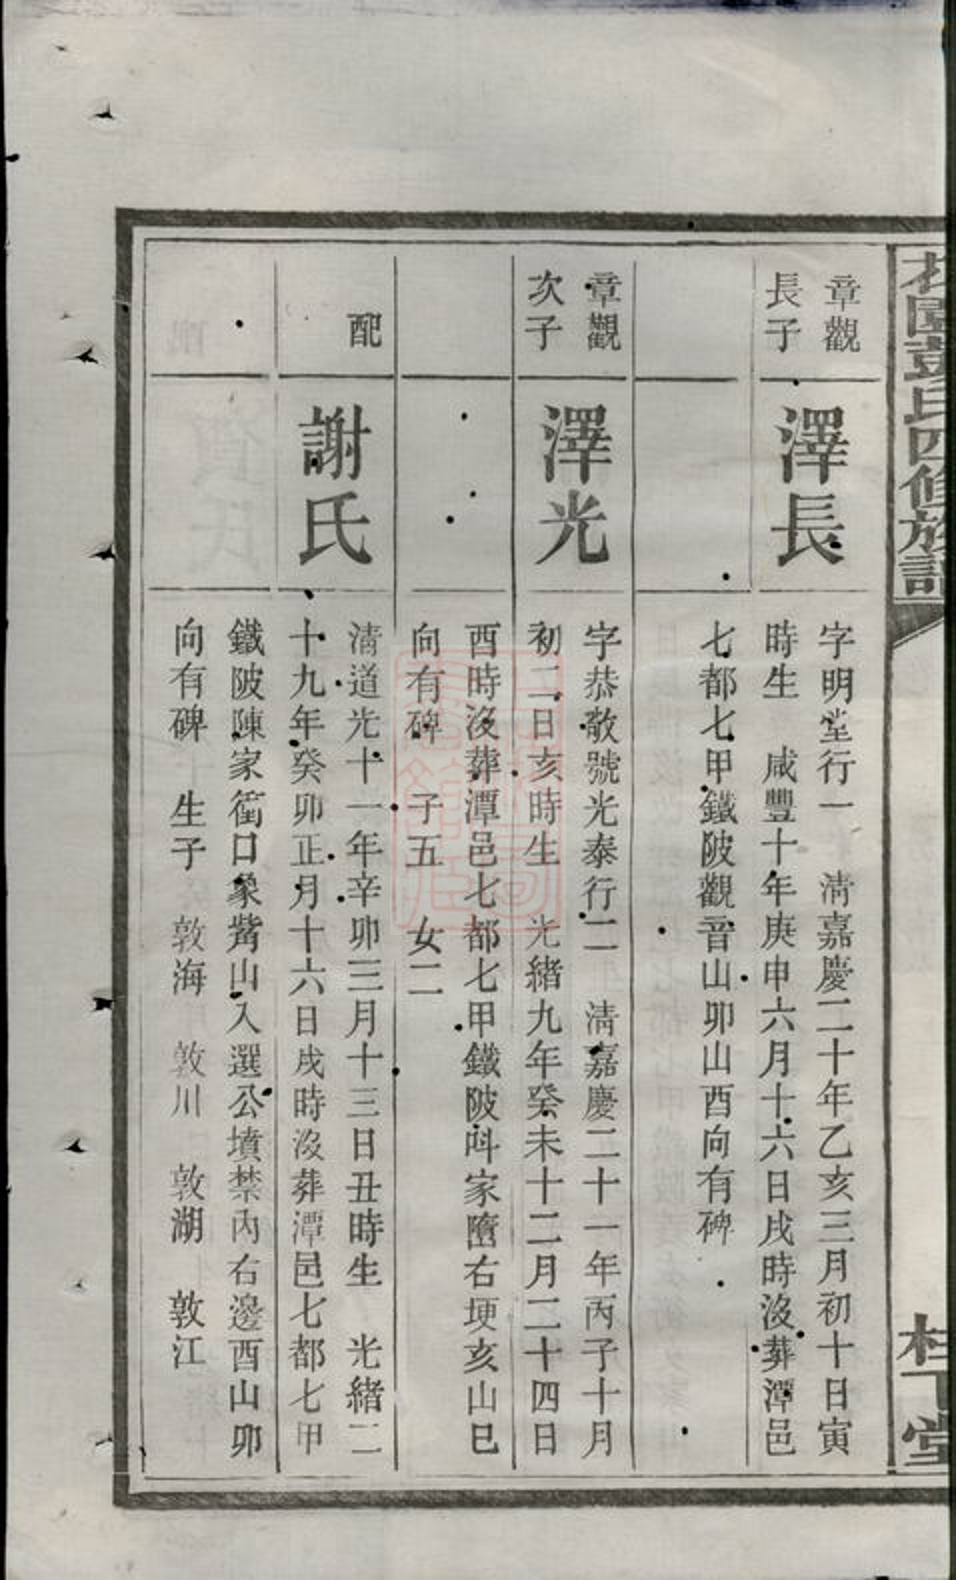 氏四修族譜
堂
章觀
長子
澤長
字明堂行一　清嘉慶二十年乙亥三月初十日寅
時生　咸豐十年庚申六月十六日戌時沒葬潭邑
七都七甲鐵陂觀音山卯山酉向有碑
章觀
次子
澤光
字恭敬號光泰行二　清嘉慶二十一年丙子十月
初二日亥時生　光緒九年癸未十二月二十四日
酉時沒葬潭邑七都七甲鐵陂呌家墮右埂亥山巳
向有碑　子五　女二
配
謝氏
清道光十一年辛卯三月十三日丑時生　光緒二
十九年癸卯正月十六日戌時沒葬潭邑七都七甲
鐵陂陳家衝口象觜山入選公墳禁內右邊酉山卯
向有碑　生子　敦海　敦川　敦湖　敦江